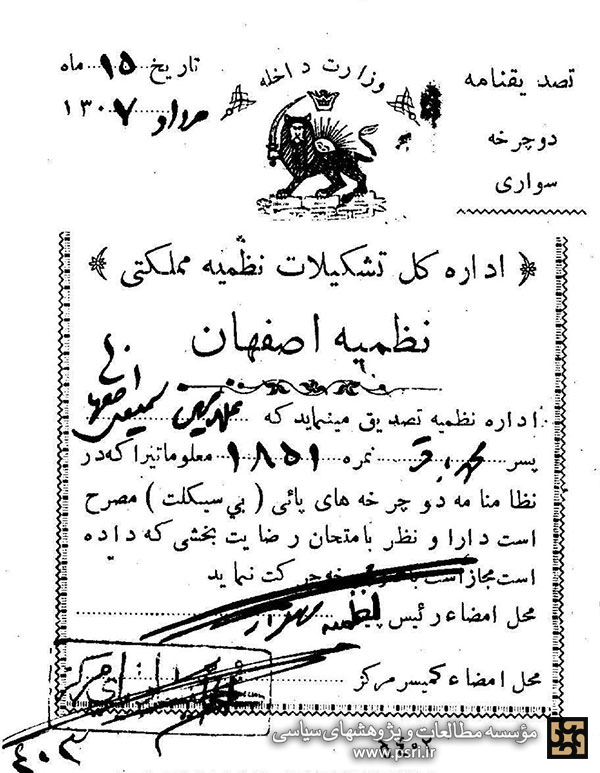 تصدیقنامه
دوچرخه
سواری
وزارت داخله
تاریخ ۱۵ ماه
مرداد ۱۳۰۷
اداره کل تشکیلات نظمیه مملکتی
نظمیه اصفهان
اداره نظمیه تصدیق مینماید که
پسر نمره ۱۸۵۱ معلوماتیرا که در
نظامنامه دوچرخه های پائی (بی سیکلت) مصرح
است دارا و نظر بامتحان رضایت بخشی که داده
است مجاز است با حرکت نماید
محل امضاء رئیس نظمیه
محل امضاء کمیسر مرکز
۴۰۳
مؤسسه مطالعات و پژوهشهای سیاسی
www.psri.ir